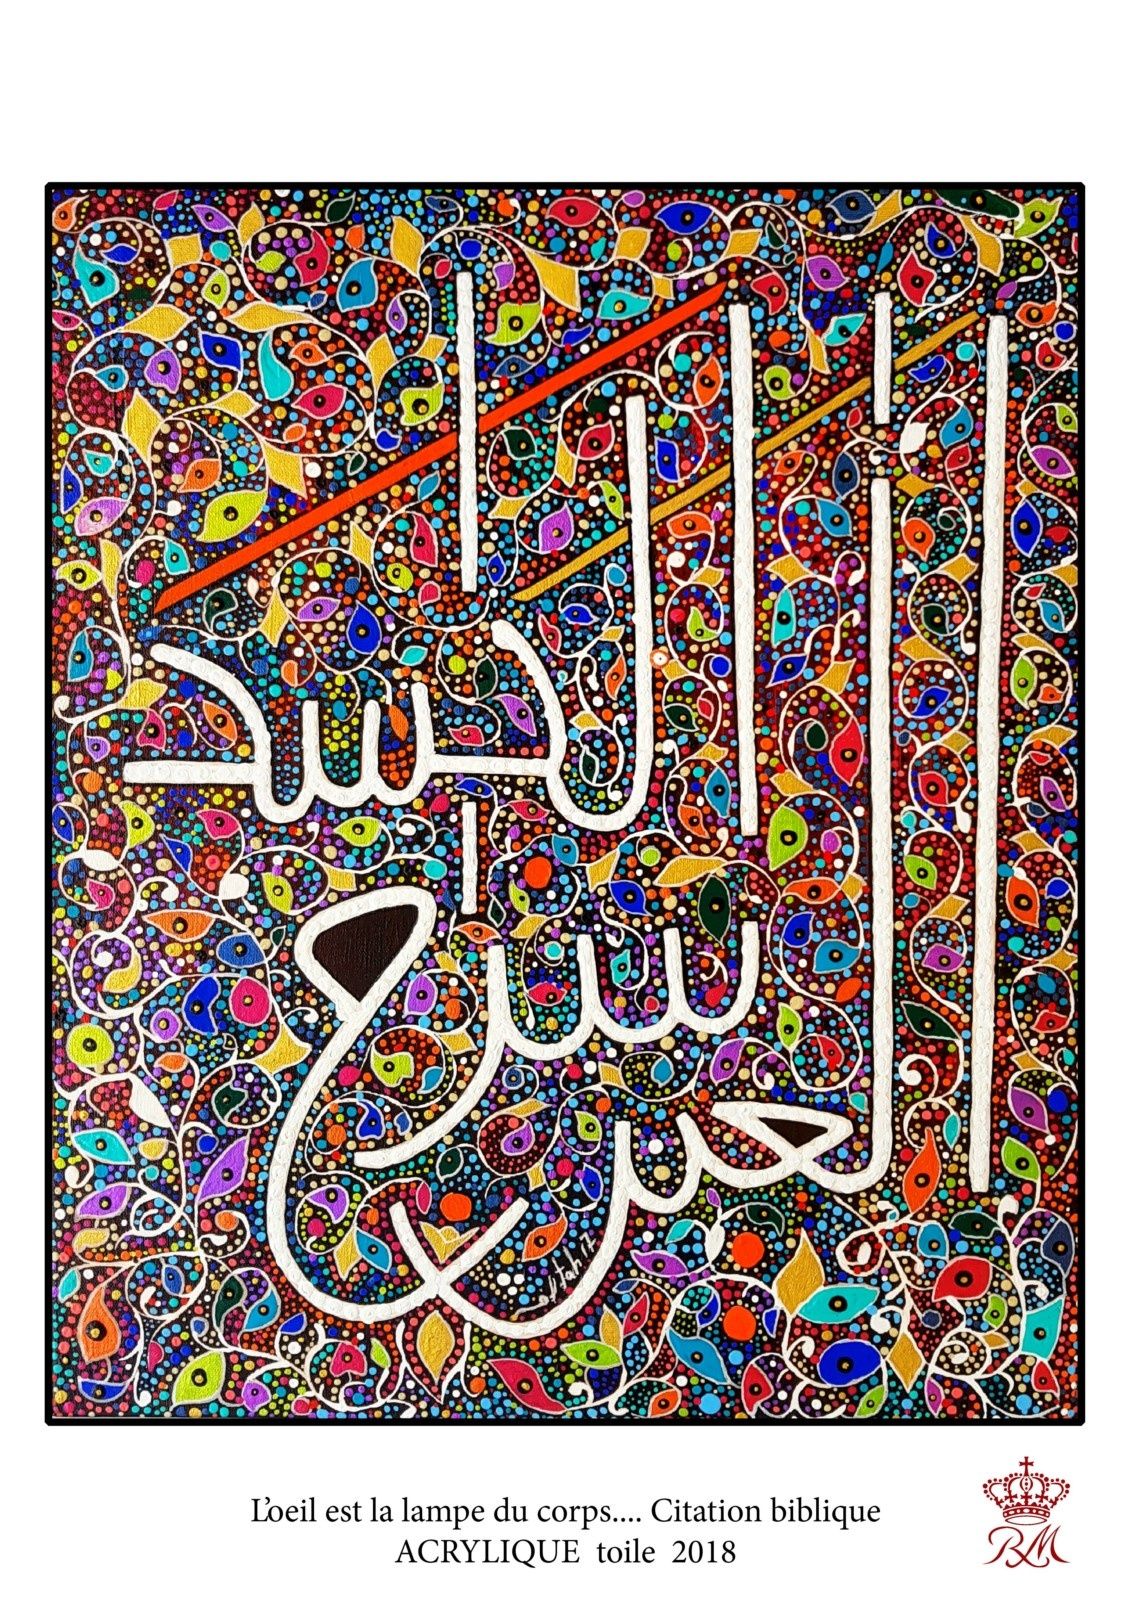 العين سراج الجسد
L'oeil est la lampe du corps.... Citation biblique
ACRYLIQUE toile 2018
RM